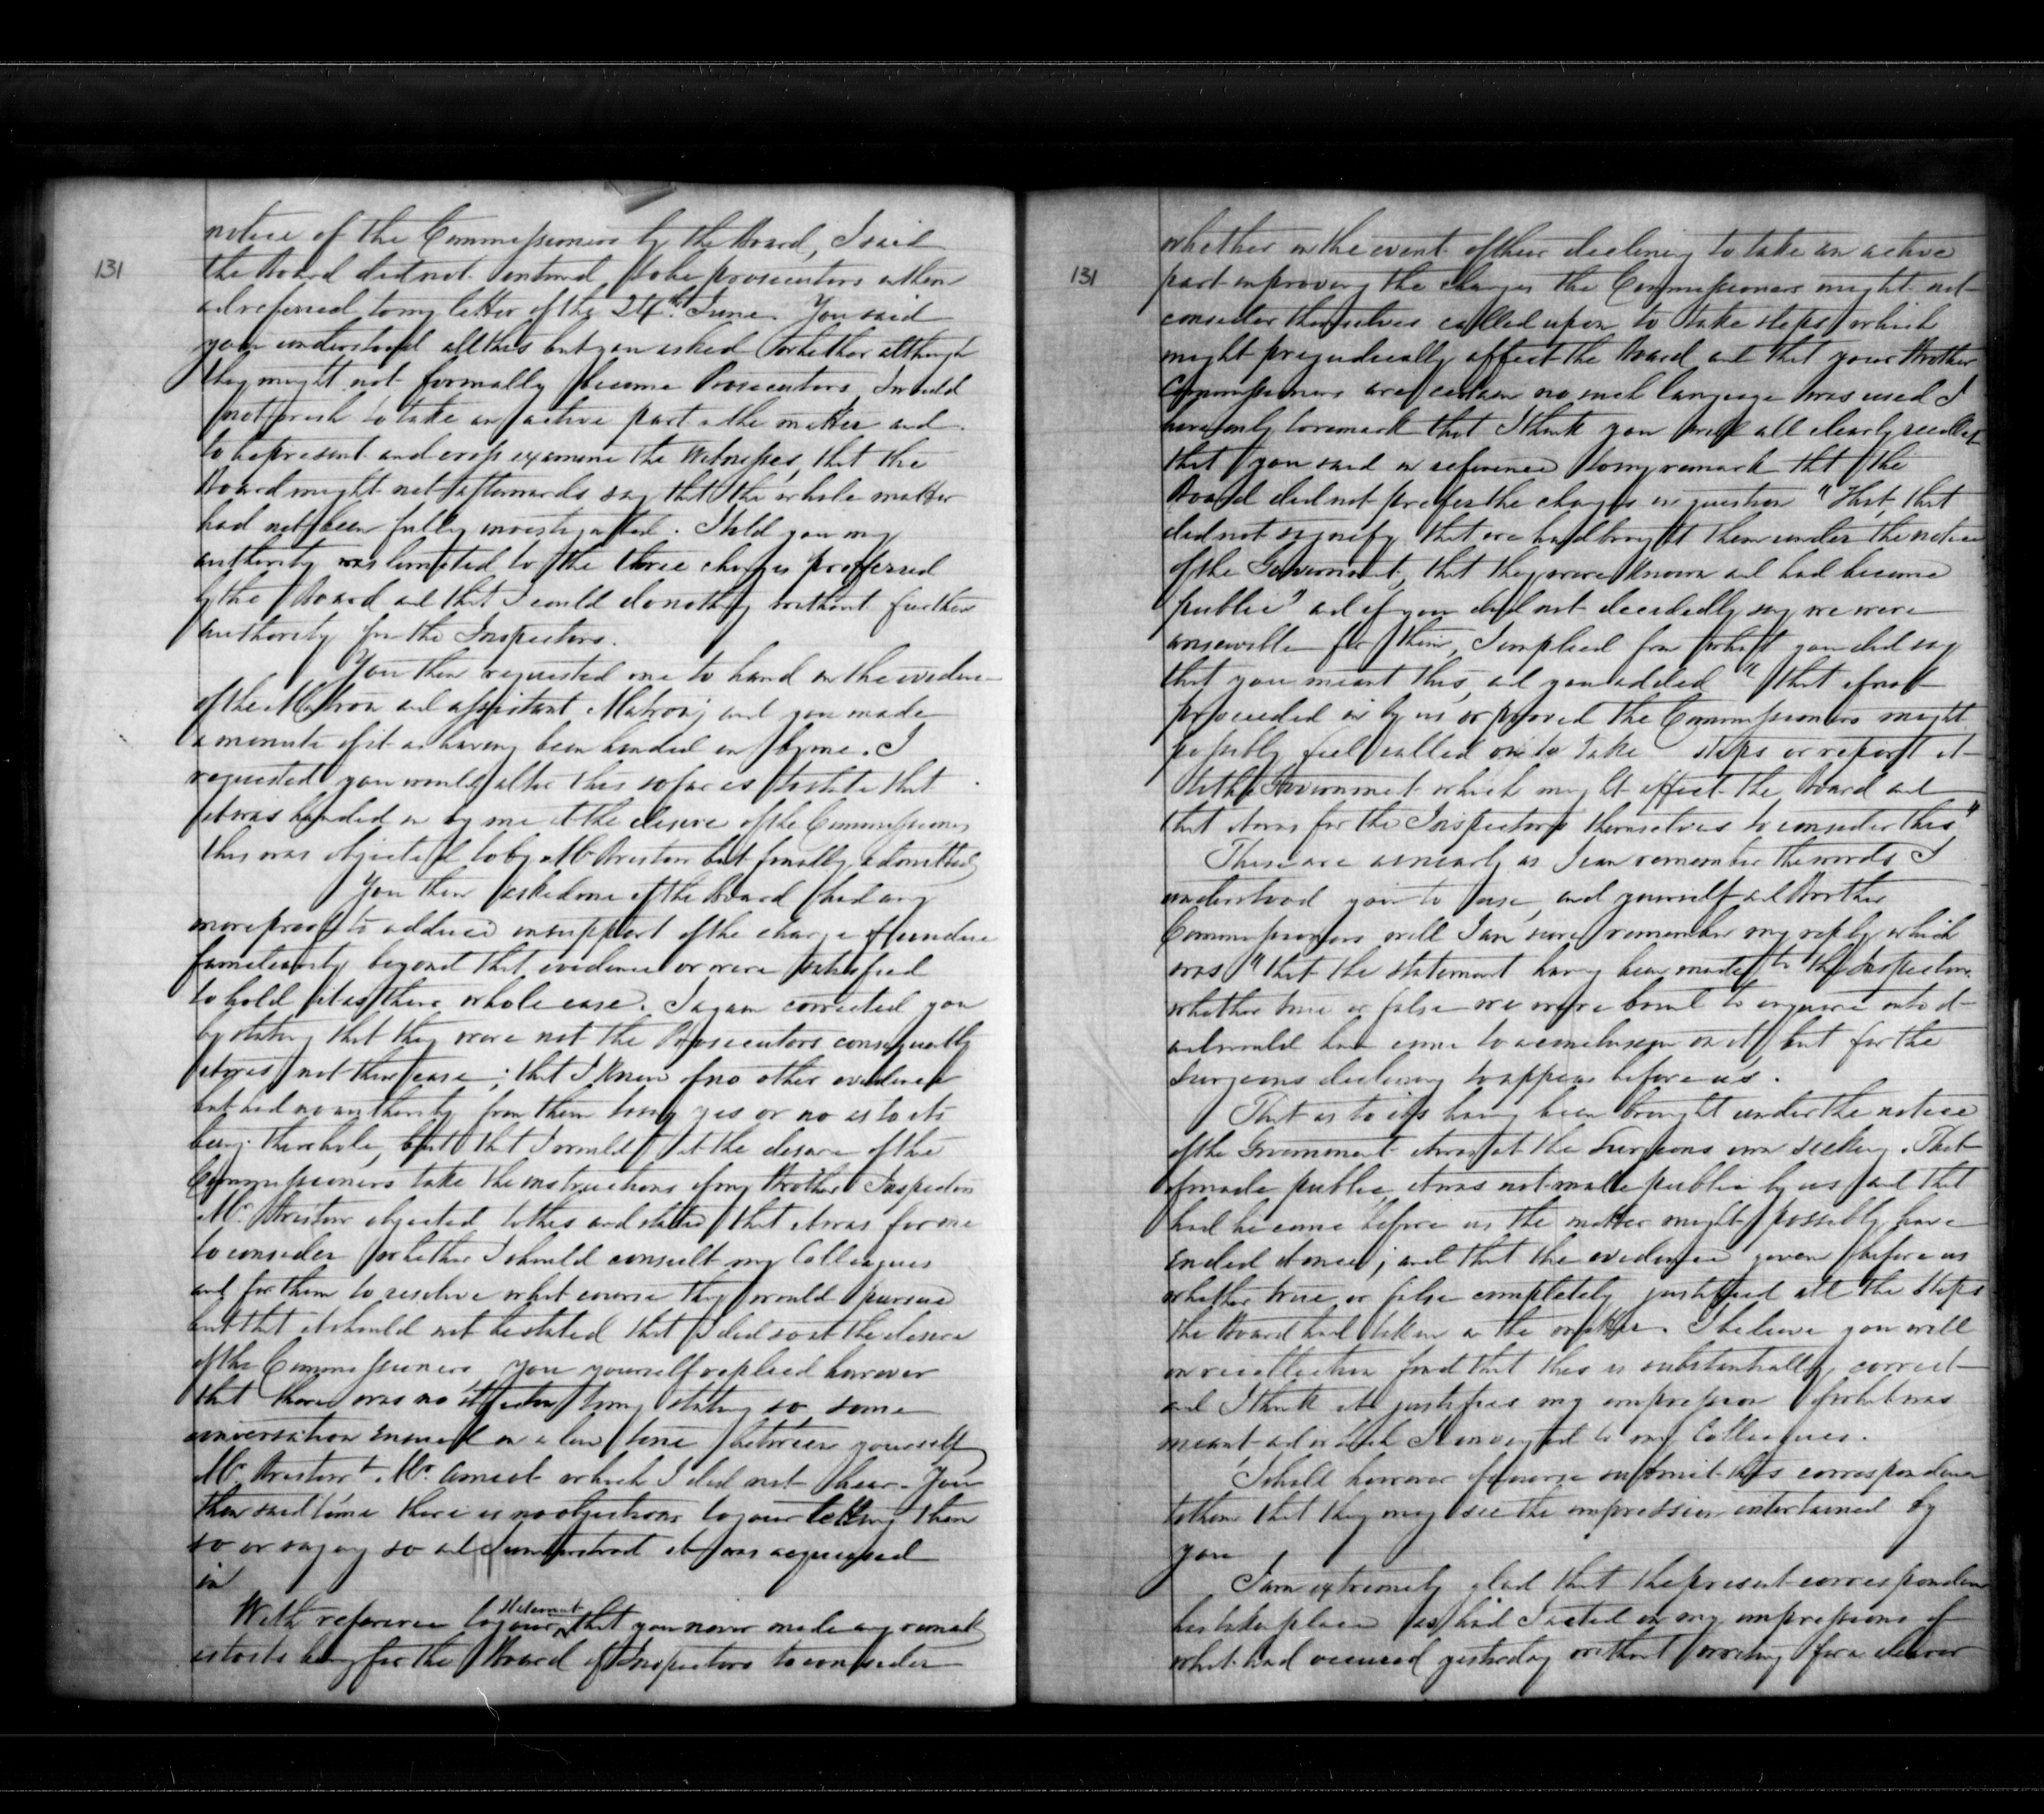 131
notice of the Commissioners by the Board, I said
the Board did not intend to be prosecutors in them
and referred to my letter of the 24th June. You said
you understood all this but you asked whether although
they might not formally become Prosecutors, I would
not wish to take an active part in the matter and
to be present and cross examine the Witnesses, that the
Board might not afterwards say that the whole matter
had not been fully investigated. I told you my
authority was limited to the three charges preferred
by the Board and that I could do nothing without further
authority from the Inspectors.
You then requested me to hand in the evidence
of the Matron and assistant Matron; and you made
a minute of it as having been handed in by me. I
requested you would alter this so far as to state that
it was handed in by me at the desire of the Commissioners
this was objected to by Mr. Bristow but finally admitted
You then asked me if the Board had any
more proof to adduce in support of the charge of undue
familiarity beyond that evidence or were satisfied
to hold it as their whole case. I again corrected you
by stating that they were not the Prosecutors consequently
it was not their case; that I knew of no other evidence
but had no authority from them to say yes or no as to its
being the whole, but that I would at the desire of the
Commissioners take the instructions of my Brother Inspectors
Mr. Bristow objected to this and stated that it was for me
to consider whether I should consult my Colleagues
and for them to resolve what course they would pursue
but that it should not be stated that I did so at the desire
of the Commissioners you yourself replied however
that there was no objection to my stating so, some
conversation ensued in a low tone between yourself
Mr. Bristow & Mr. Amiot which I did not hear. You
then said to me there is no objections to your telling them
so or saying so and I understood it was acquiesced
in
With reference to your statement that you never made any remark
as to its being for the Board of Inspectors to consider
131
whether in the event of their declining to take an active
part in proving the charges the Commissioners might not
consider themselves called upon to take steps which
might prejudicially affect the Board and that your Brother
Commissioners are certain no such language was used I
have only to remark that I think you will all clearly recollect
that you said in reference to my remark that the
Board did not prefer the charges in question "That, that
did not signify that we had brought them under the notice
of the Government, that they were known and had become
public" and if you did not decidedly say we were
answerable for them, I implied from what you did say
that you meant this, and you added "that if not
proceeded in by us or proved the Commissioners might
possibly feel called on to take steps or report it
to the Government which might affect the Board and
that it was for the Inspectors themselves to consider this"
These are as nearly as I can remember the words I
understood you to use, and yourself and Brother
Commissioners will I am sure remember my reply which
was "that the statement having been made to the Inspectors
whether true or false we were bound to enquire into it
and would have come to a conclusion on it, but for the
Surgeons declining to appear before us.
That as to its having been brought under the notice
of the Government it was at the Surgeons own seeking. That
if made public, it was not made public by us and that
had he come before us the matter might possibly have
ended at once; and that the evidence given before us
whether true or false completely justified all the steps
the Board had taken in the matter. I believe you will
on recollection find that this is substantially correct
and I think it justifies my impression of what was
meant and which I conveyed to my Colleagues.
I shall however of course submit this correspondence
to them that they may see the impression entertained by
you
I am extremely glad that the present correspondence
has taken place as had I acted on my impressions of
what had occurred yesterday without writing for a clearer